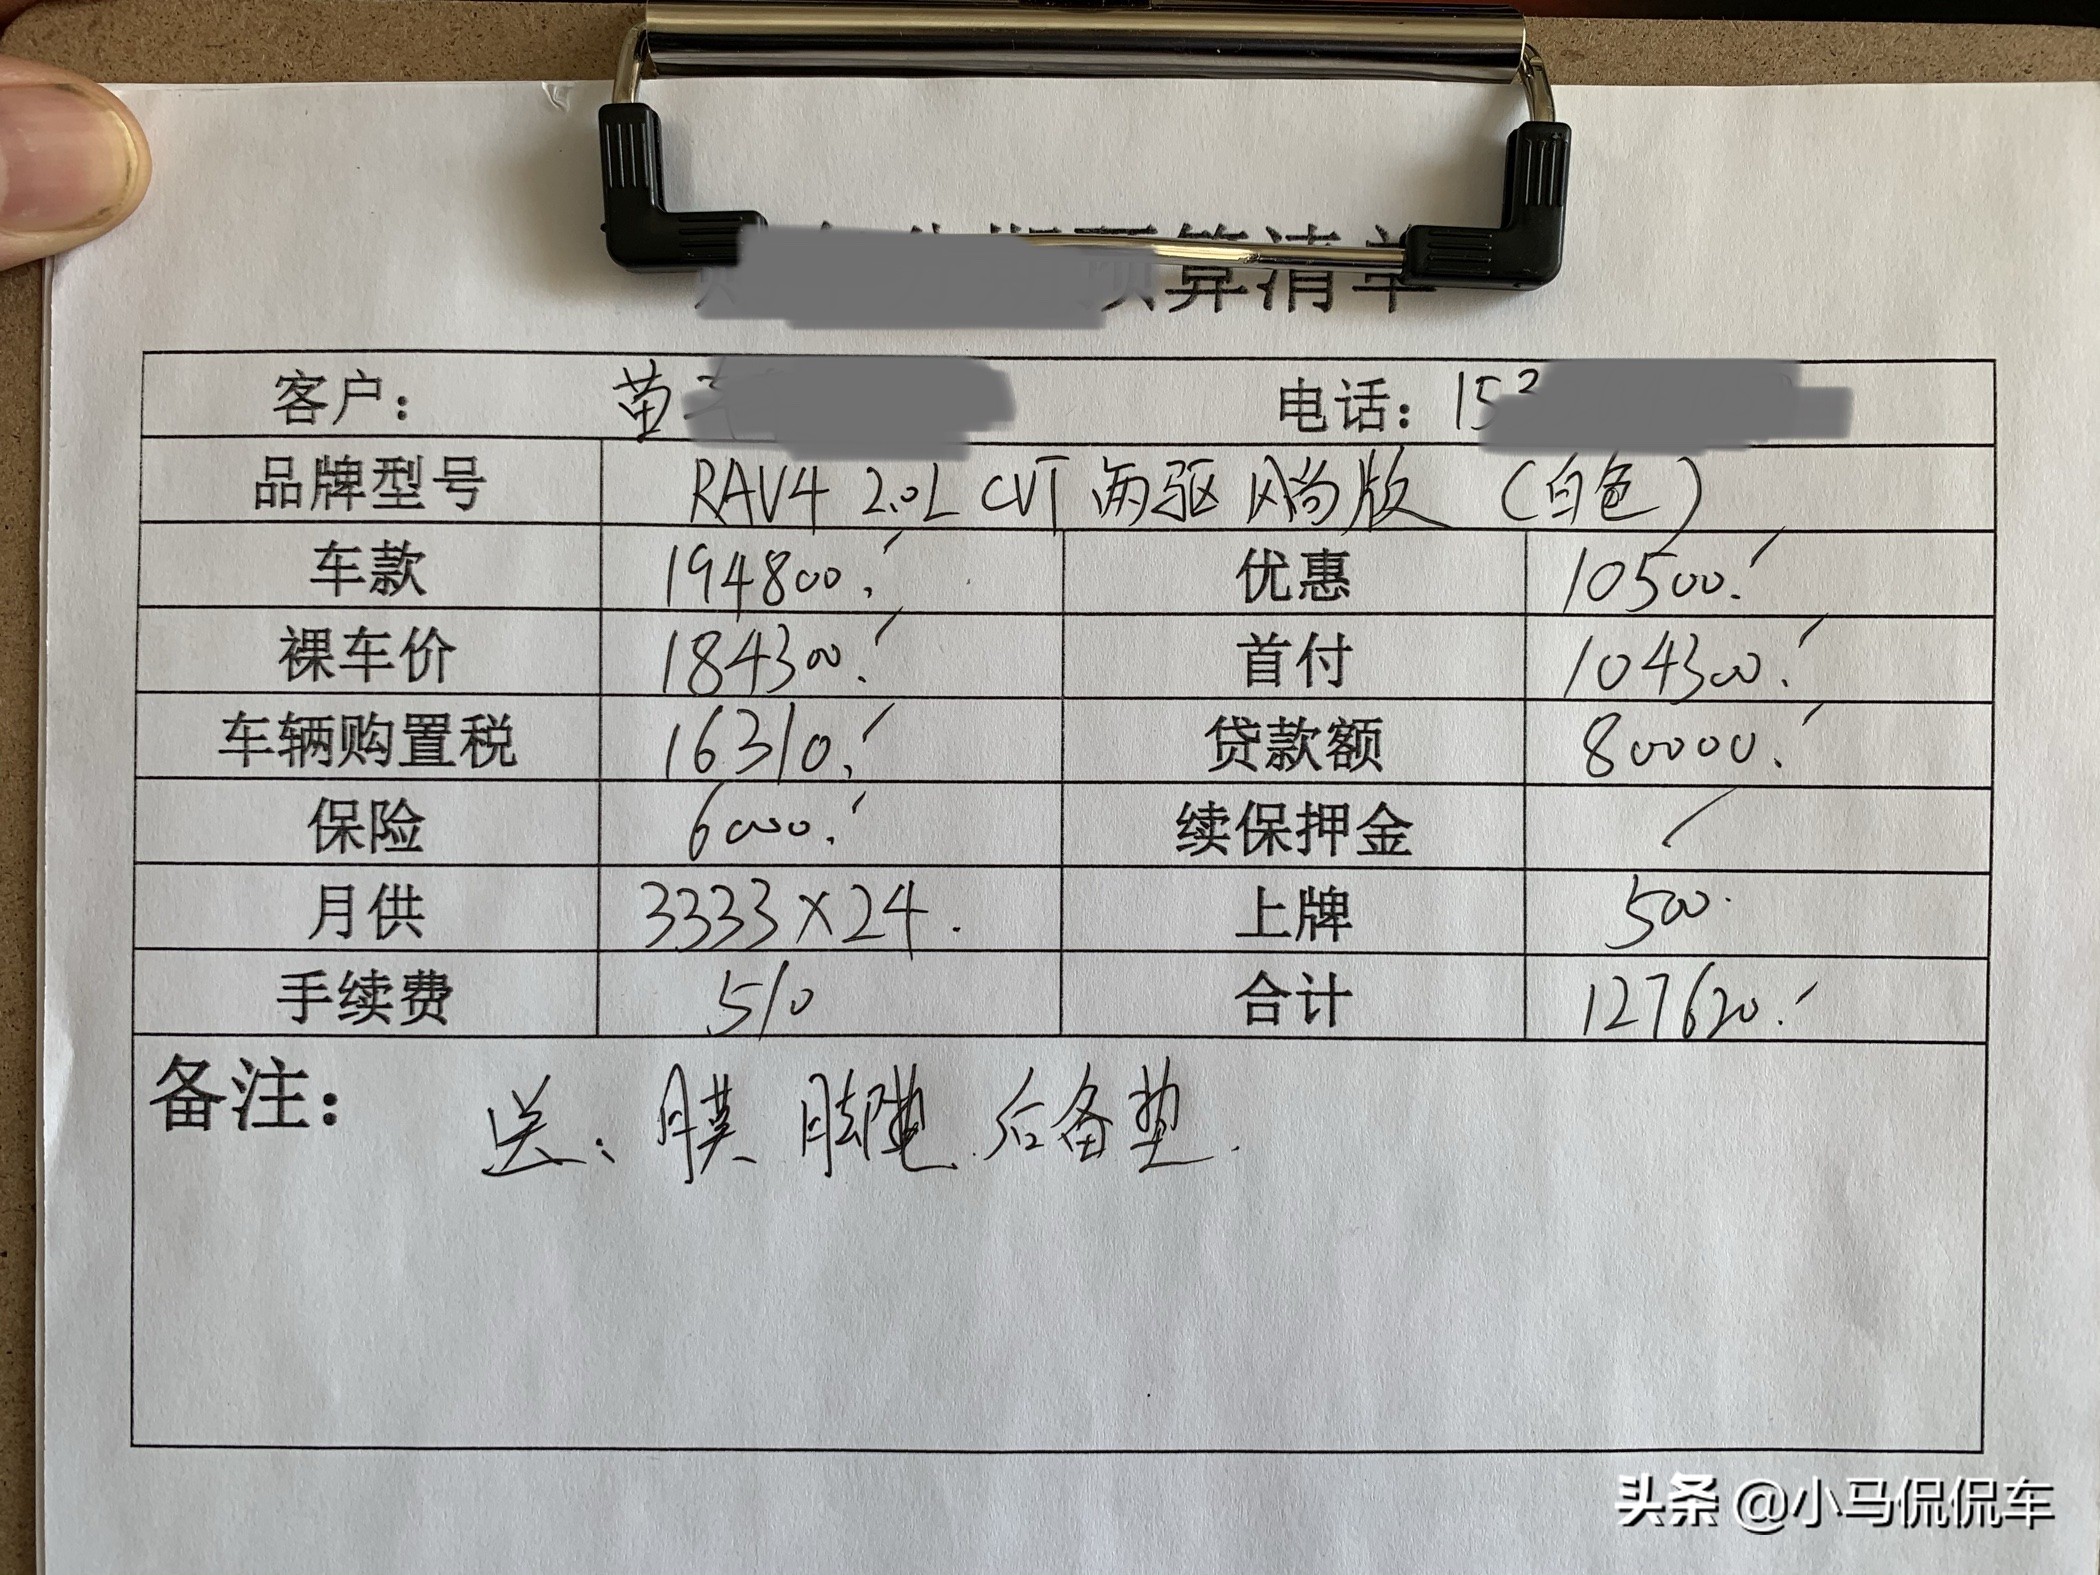 预算清单
客户： 苗 电话：15
品牌型号 RAV4 2.0L CVT 两驱 风尚版 （白色）
车款 194800. 优惠 10500.
裸车价 184300. 首付 104300.
车辆购置税 16310. 贷款额 80000.
保险 6000. 续保押金 /
月供 3333×24. 上牌 500.
手续费 510 合计 127620.
备注： 送：膜 脚垫 后备垫.
头条 @小马侃侃车